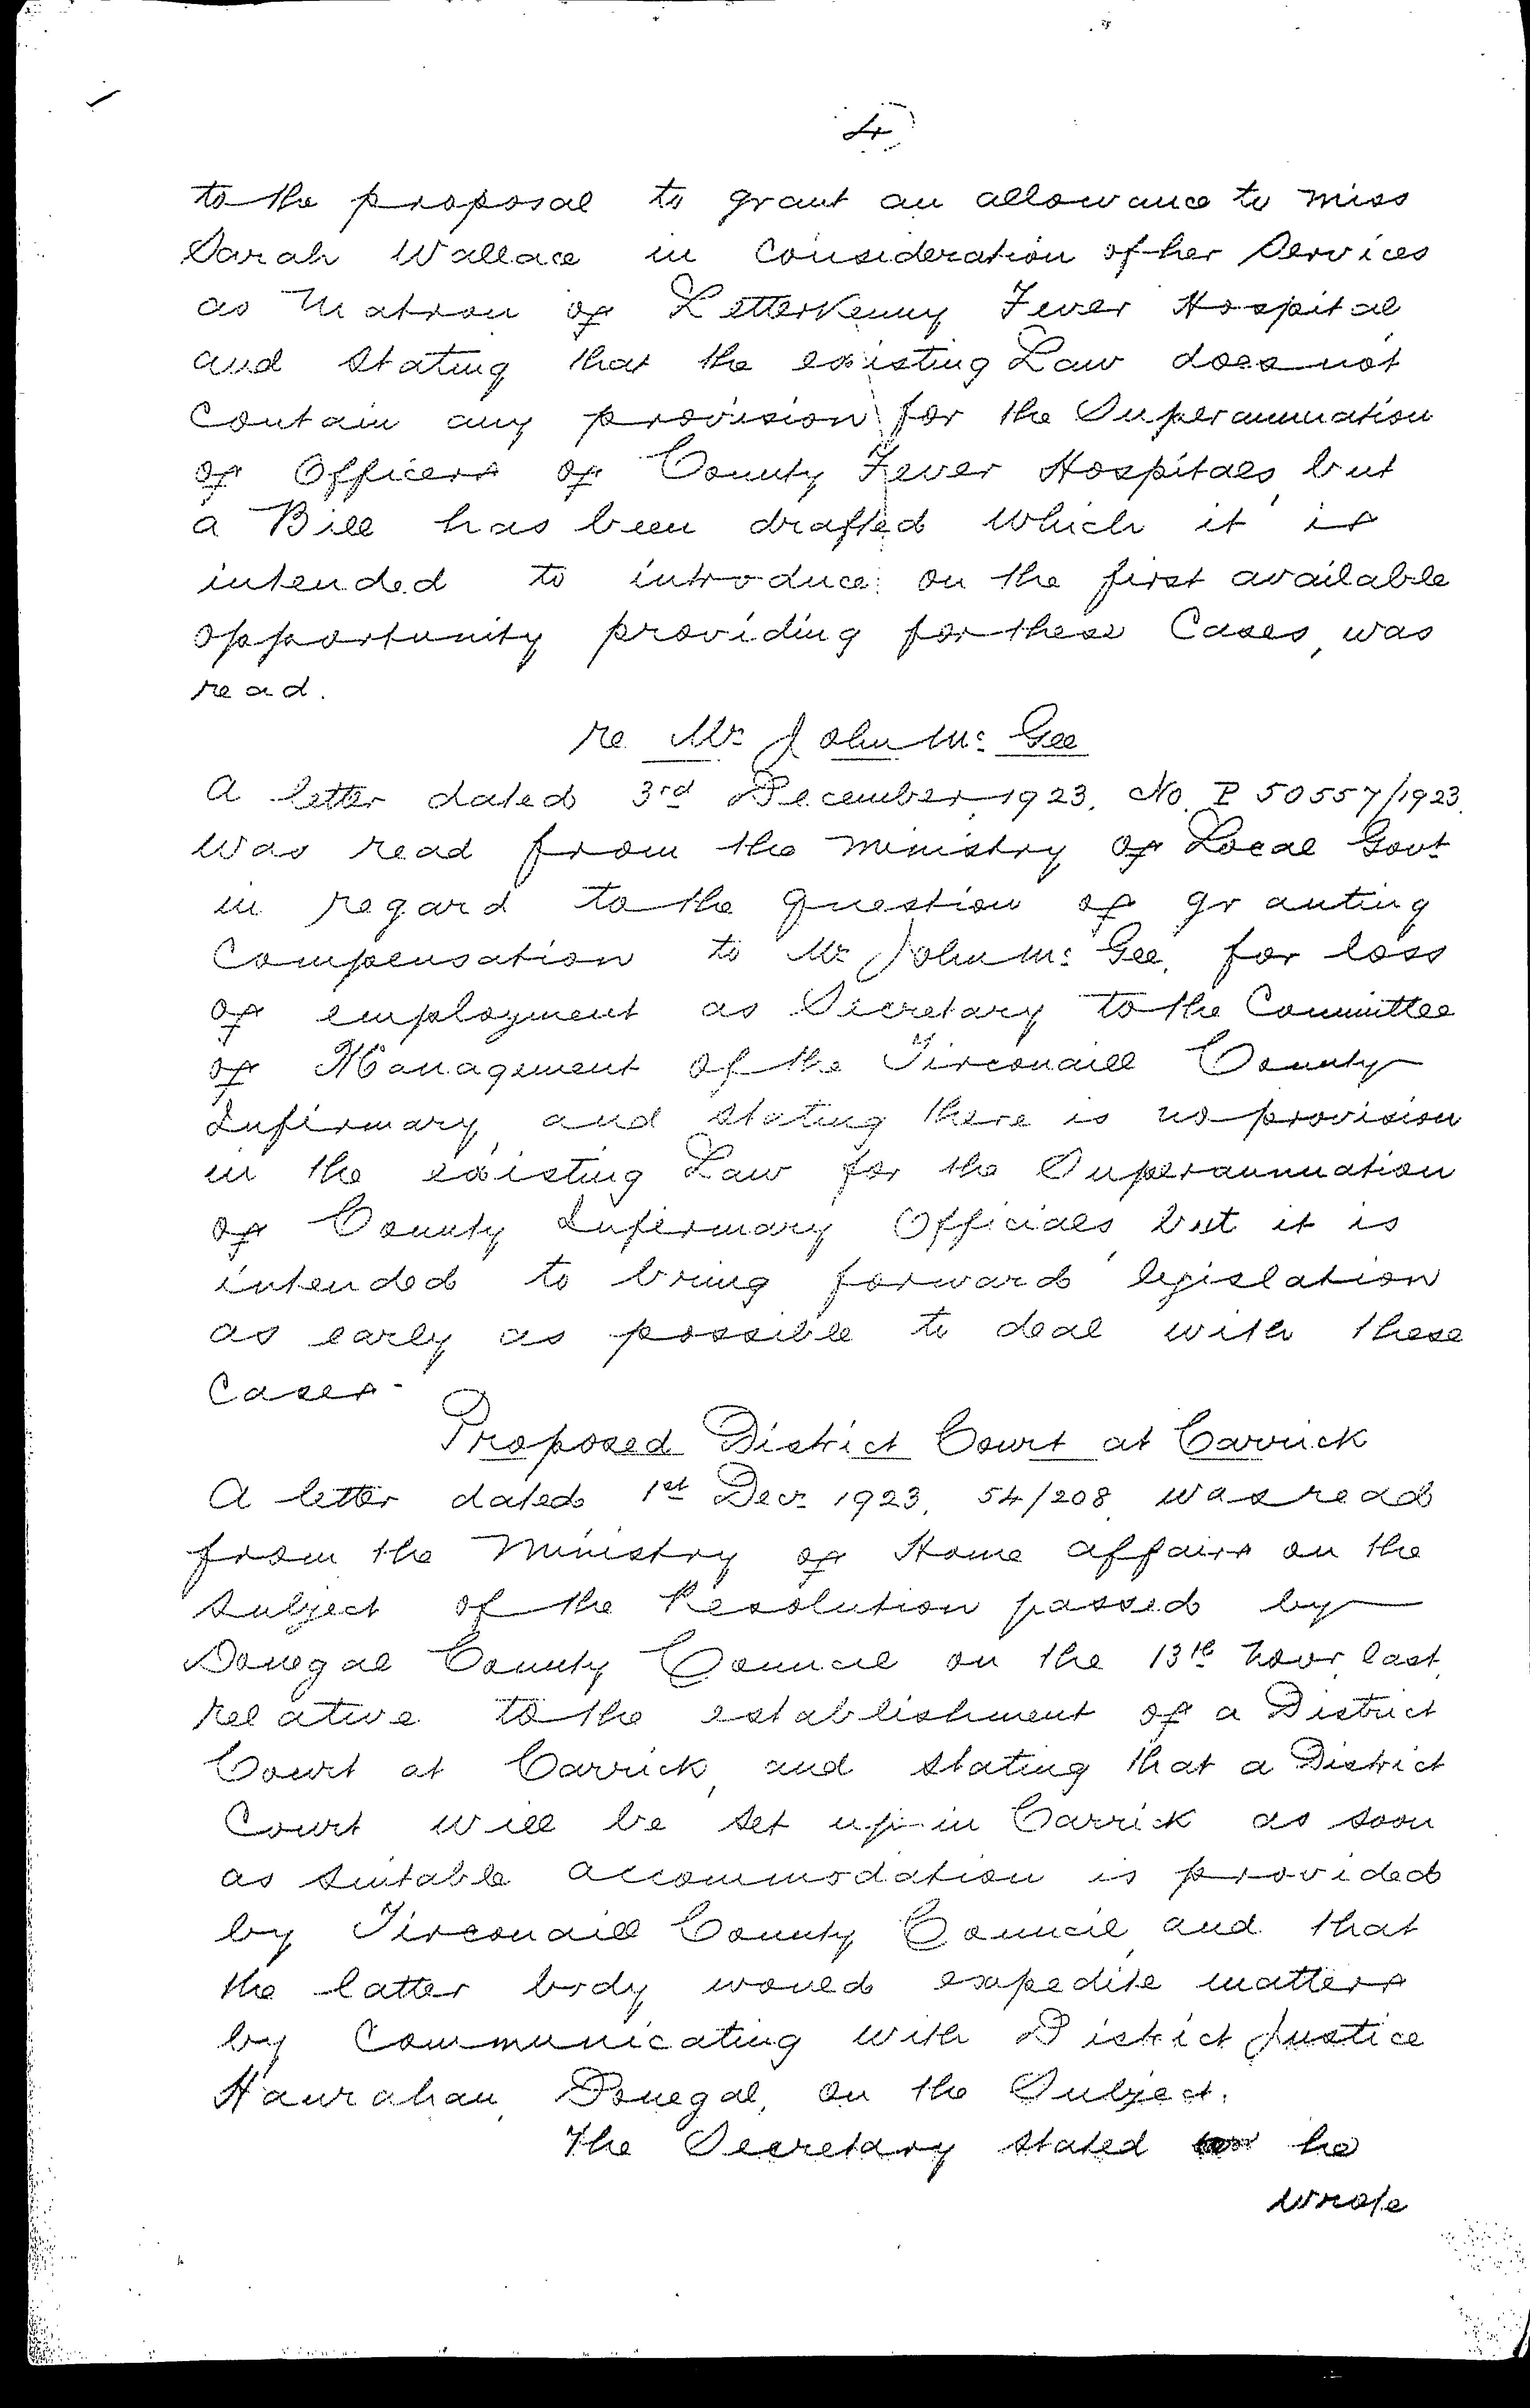 4
to the proposal to grant an allowance to Miss
Sarah Wallace in Consideration of her Services
as Matron of Letterkenny Fever Hospital
and Stating that the existing Law does not
Contain any provision for the Superannuation
of Officers of County Fever Hospitals, but
a Bill has been drafted which it is
intended to introduce on the first available
opportunity providing for these Cases, was
read.
re Mr John Mc Gee
A letter dated 3rd December 1923. No. P 50557/1923.
was read from the Ministry of Local Govt
in regard to the question of granting
Compensation to Mr John Mc Gee, for loss
of employment as Secretary to the Committee
of Management of the Tirconaill County
Infirmary, and stating there is no provision
in the existing Law for the Superannuation
of County Infirmary Officials, but it is
intended to bring forward legislation
as early as possible to deal with these
Cases.
Proposed District Court at Carrick
A letter dated 1st Decr 1923, 54/208, was read
from the Ministry of Home affairs on the
subject of the Resolution passed by
Donegal County Council on the 13th Novr last,
relative to the establishment of a District
Court at Carrick, and stating that a District
Court will be set up in Carrick as soon
as suitable accommodation is provided
by Tirconaill County Council, and that
the latter body would expedite matters
by Communicating with District Justice
Hanrahan, Donegal, on the Subject.
The Secretary stated he
wrote